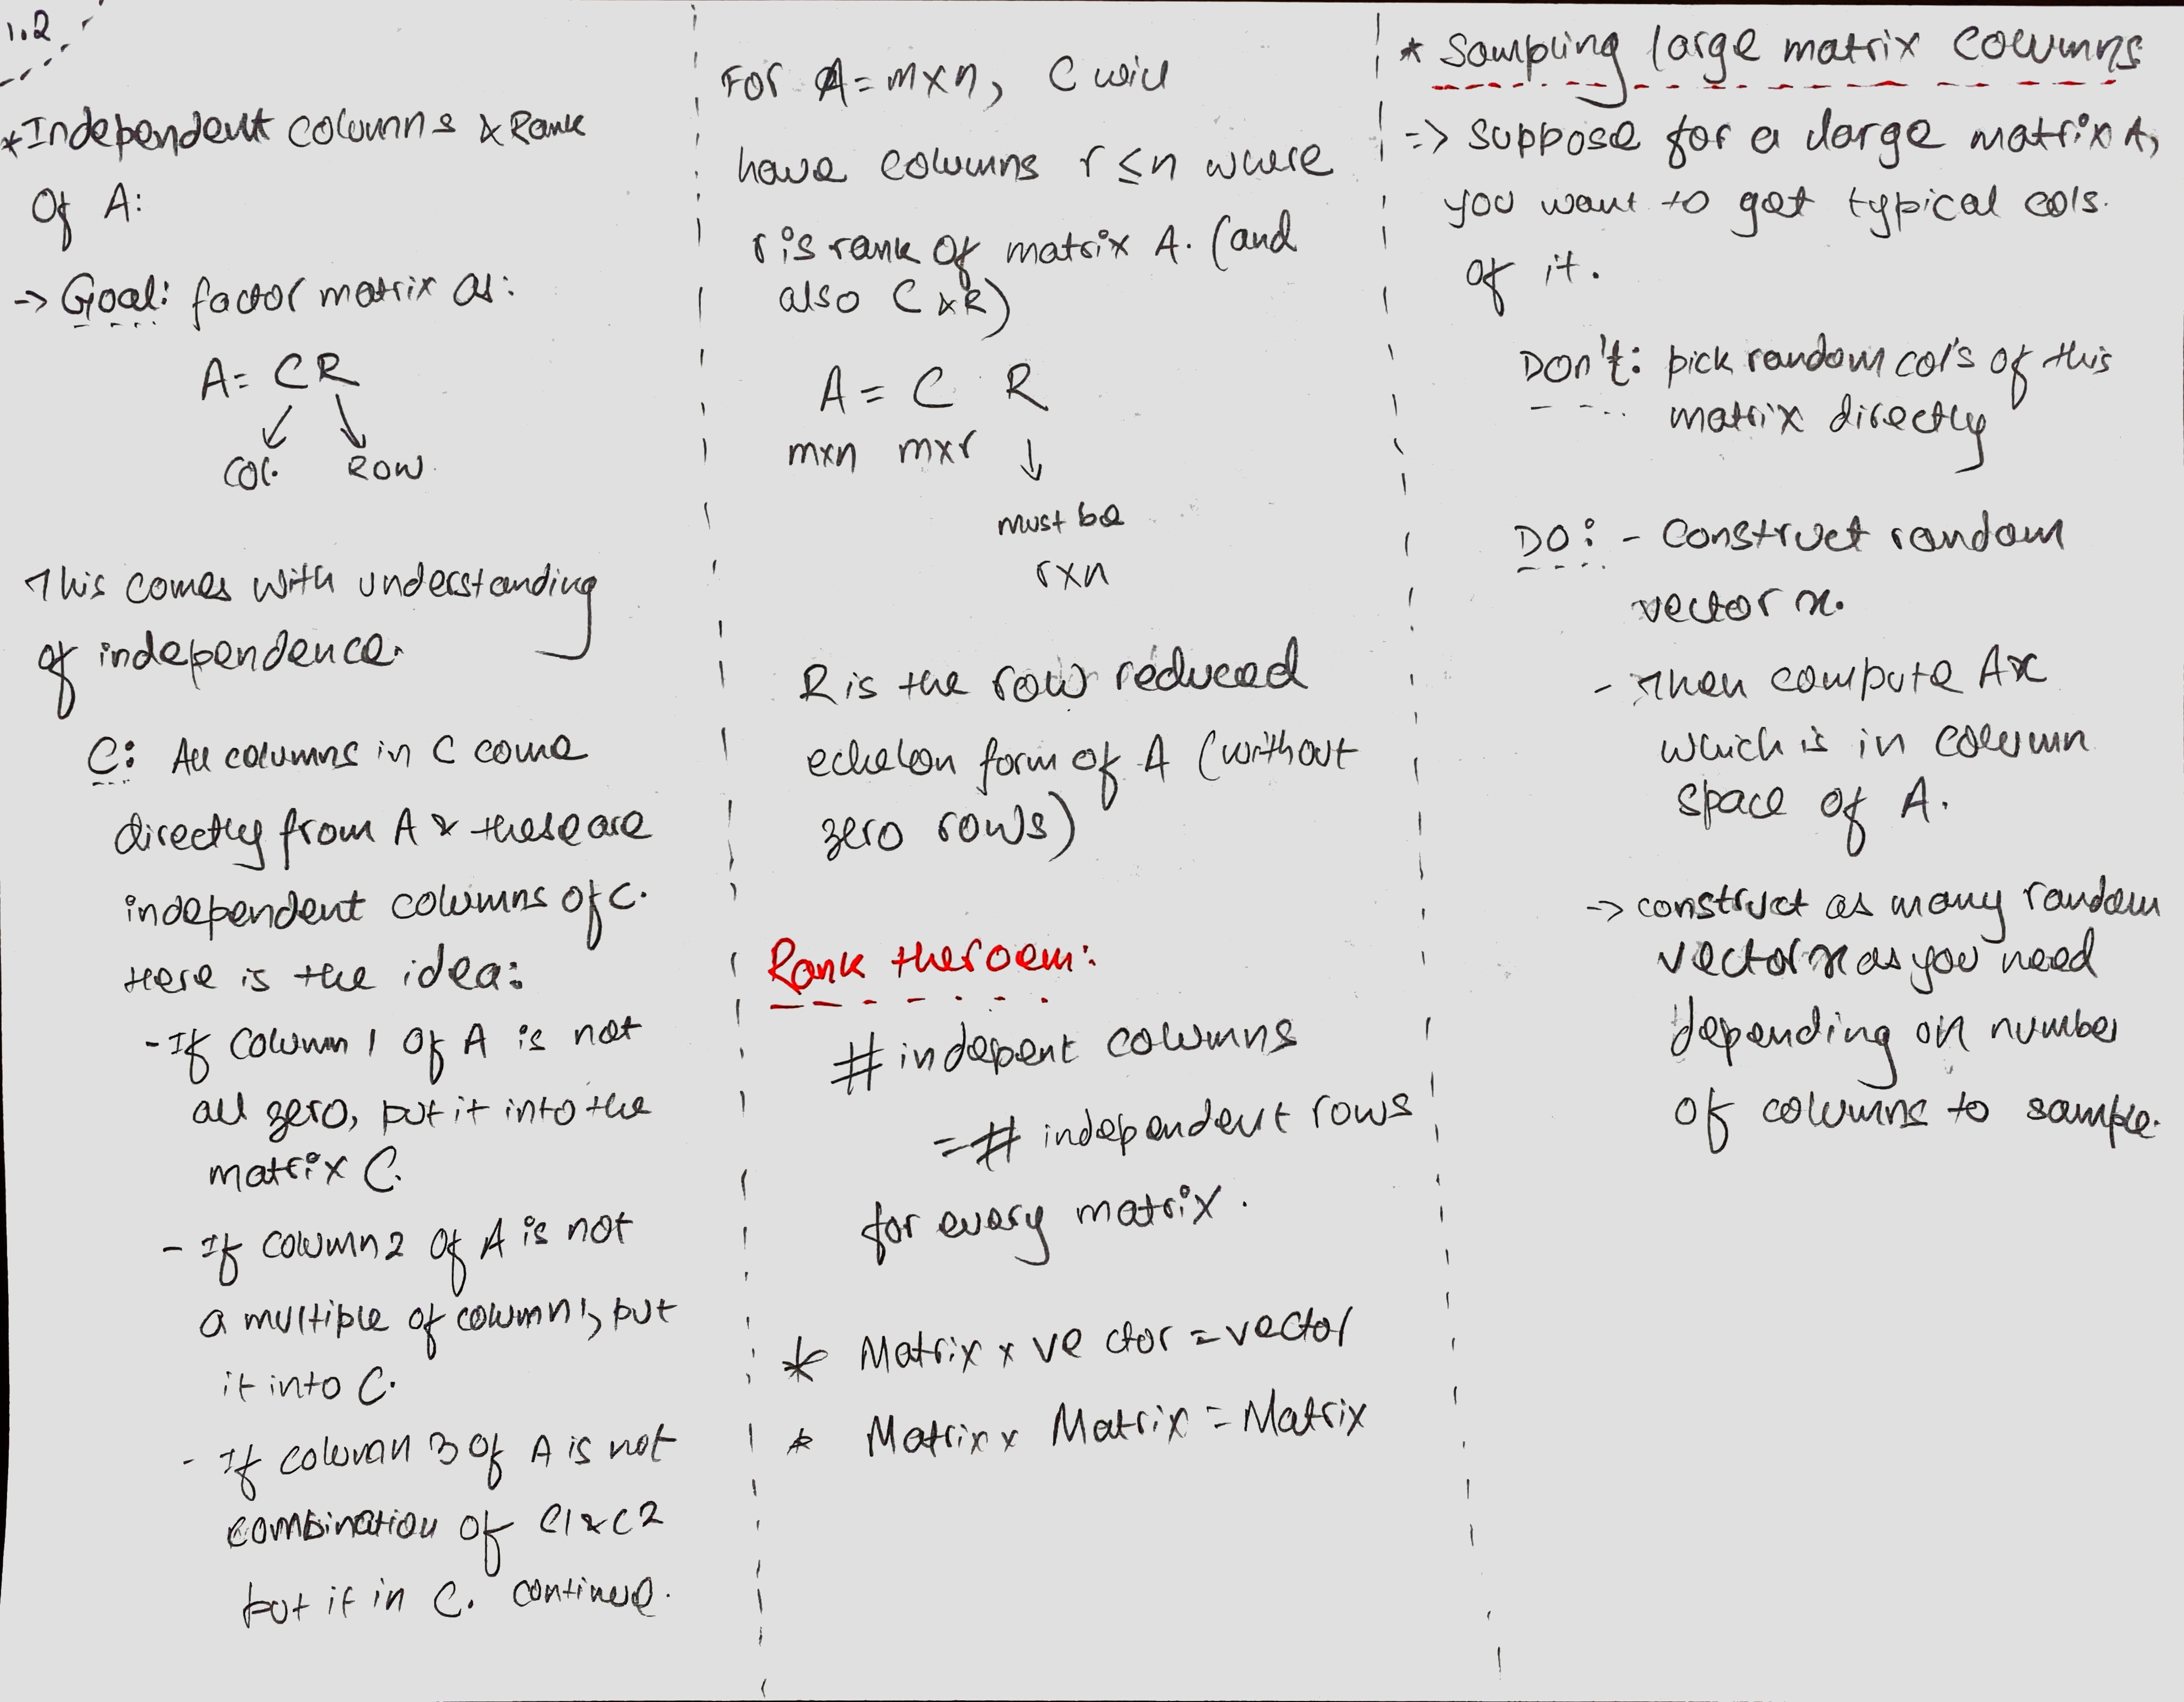 1.2
*Independent columns & Rank
Of A:
-> Goal: factor matrix as:
A = CR
Col. Row.
This comes with understanding
of independence.
C: All columns in C come
directly from A & these are
independent columns of C.
Here is the idea:
- If column 1 Of A is not
all zero, put it into the
matrix C.
- If column 2 Of A is not
a multiple of column 1, put
it into C.
- If column 3 Of A is not
combination of C1 & C2
put it in C. continue.
For A = mxn, C will
have columns r ≤ n where
r is rank of matrix A. (and
also C & R)
A = C R
mxn mxr ↓
must be
rxn
R is the row reduced
echelon form of A (without
zero rows)
Rank theroem:
# indepent columns
= # independent rows
for every matrix.
* Matrix x vector = vector
* Matrix x Matrix = Matrix
* Sampling large matrix columns
=> suppose for a large matrix A,
you want to get typical cols.
of it.
DON't: pick random col's of this
matrix directly
DO: - Construct random
vector x.
- Then compute Ax
which is in column
space of A.
-> construct as many random
vector x as you need
depending on number
of columns to sample.